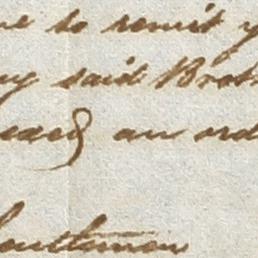 me to remit y
my said Brot
an ord
Gentleman